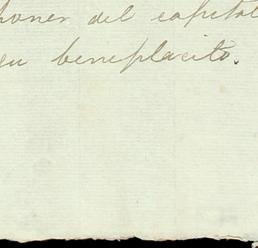 poner del capital
su beneplacito.